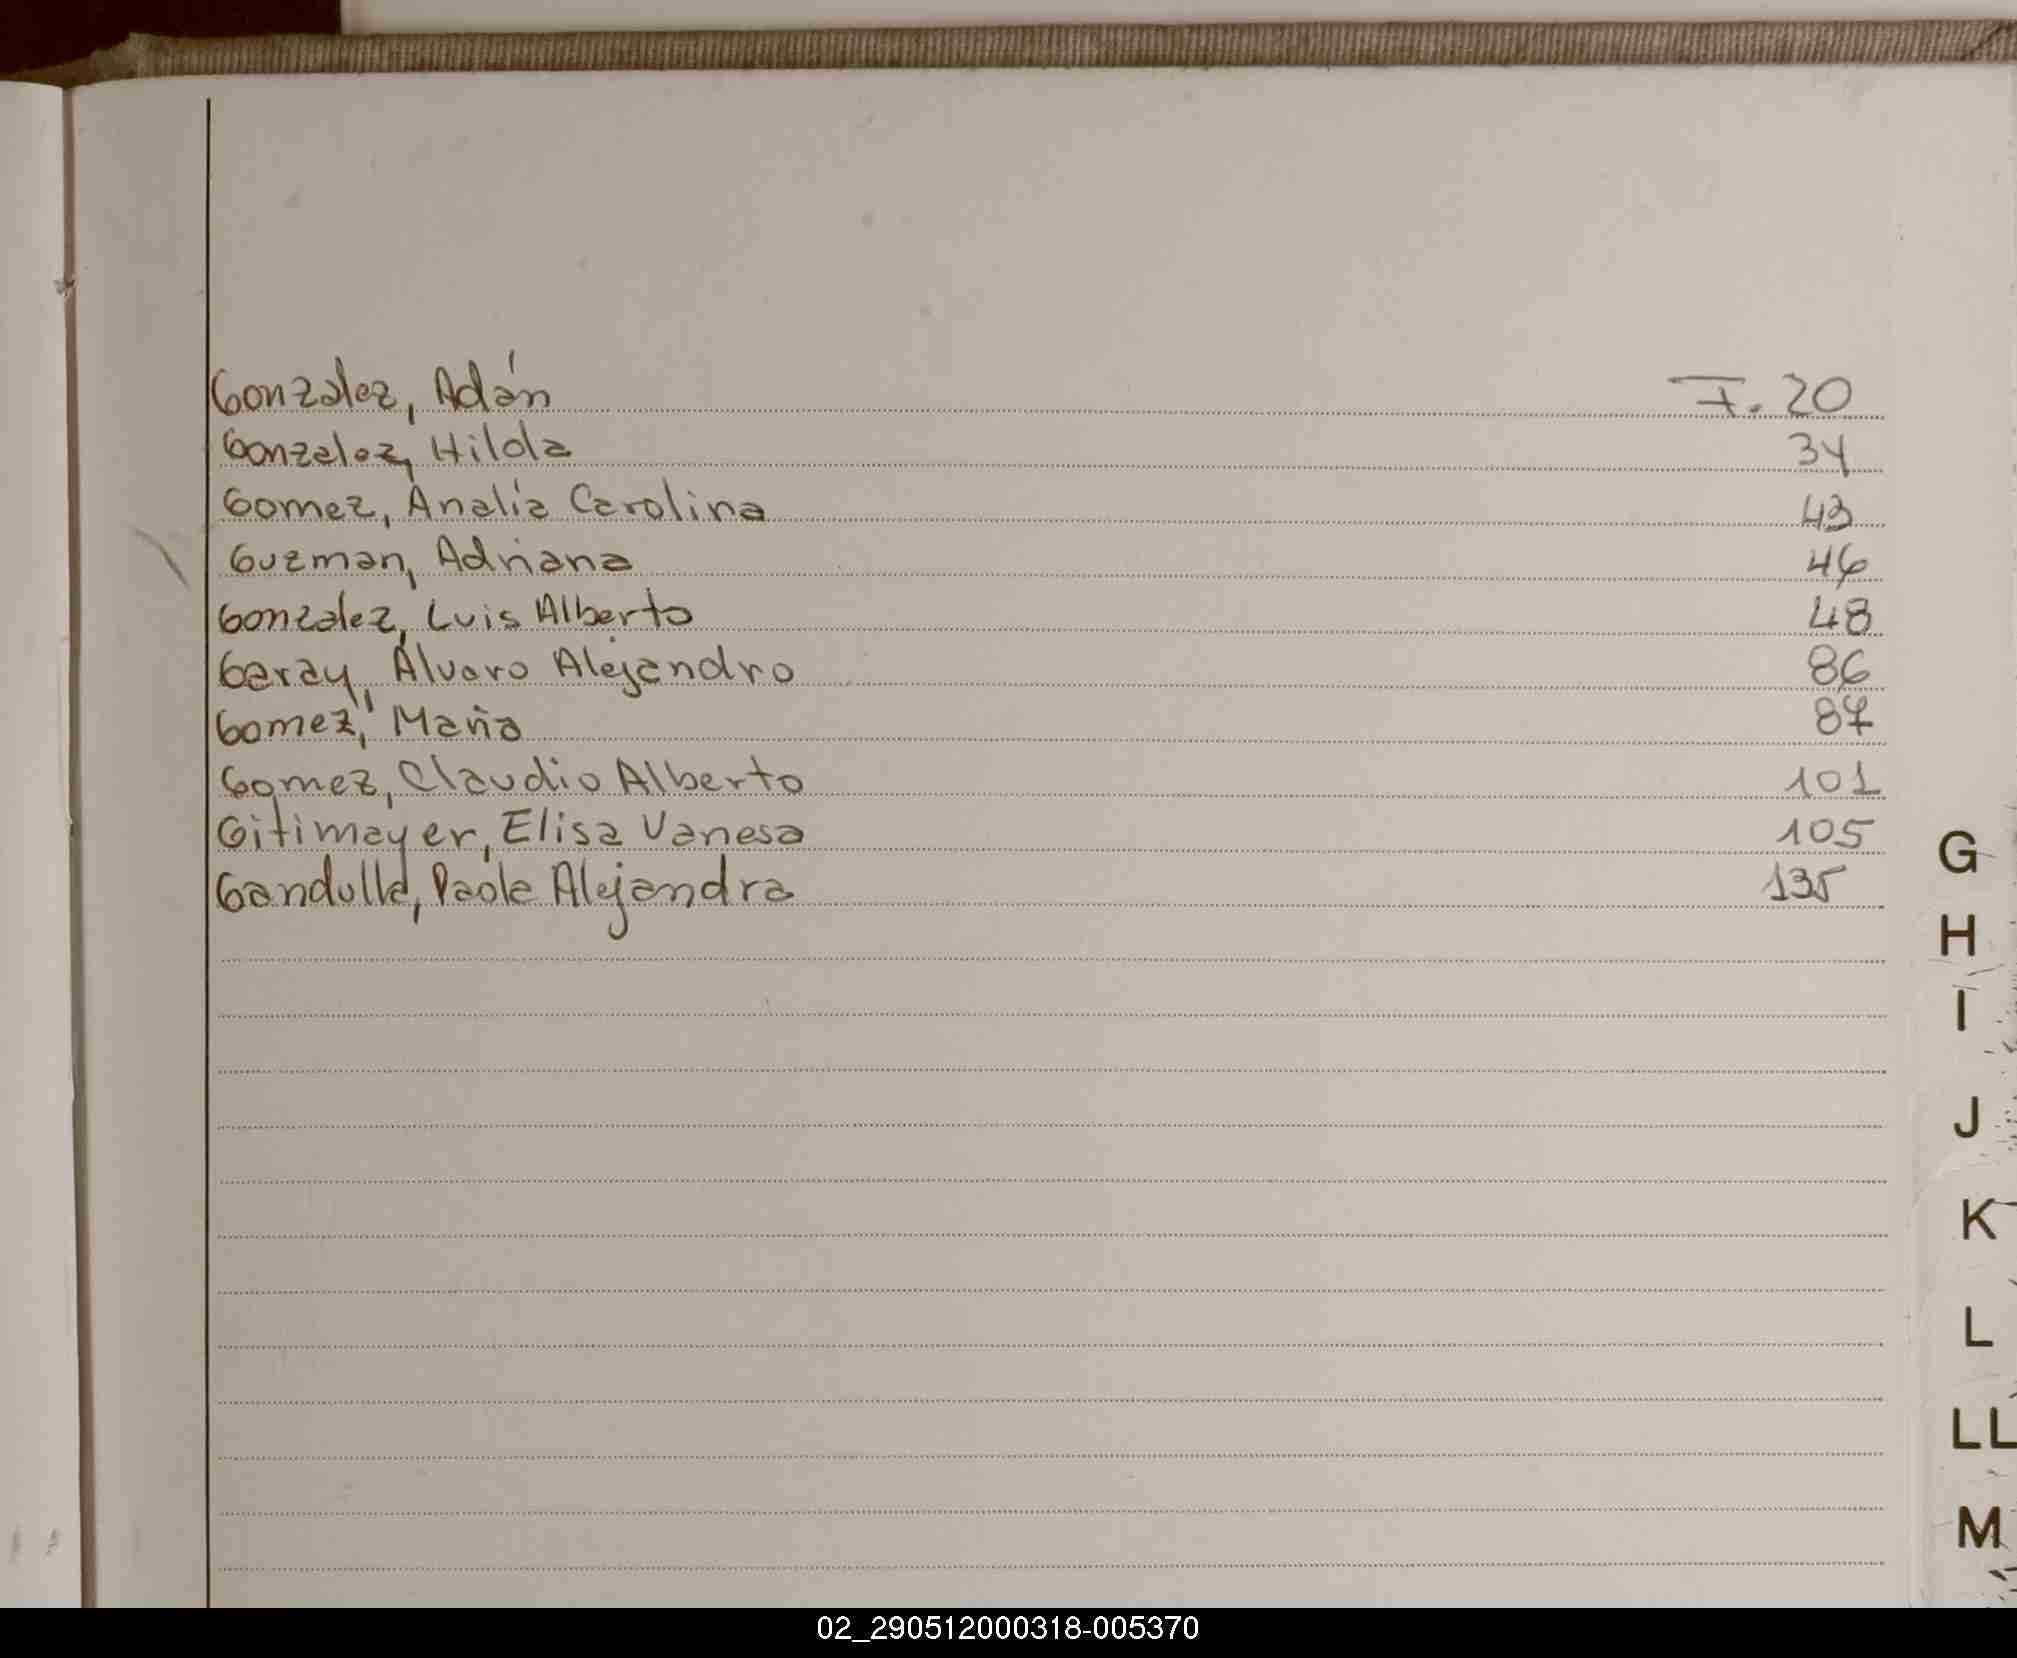 Gonzalez, Adán F. 20
Gonzalez, Hilda 34
Gomez, Analía Carolina 43
Guzman, Adriana 46
Gonzalez, Luis Alberto 48
Garay, Álvaro Alejandro 86
Gomez, María 87
Gomez, Claudio Alberto 101
Gitimayer, Elisa Vanesa 105
Gandulla, Paola Alejandra 135
G
H
I
J
K
L
LL
M
02_290512000318-005370